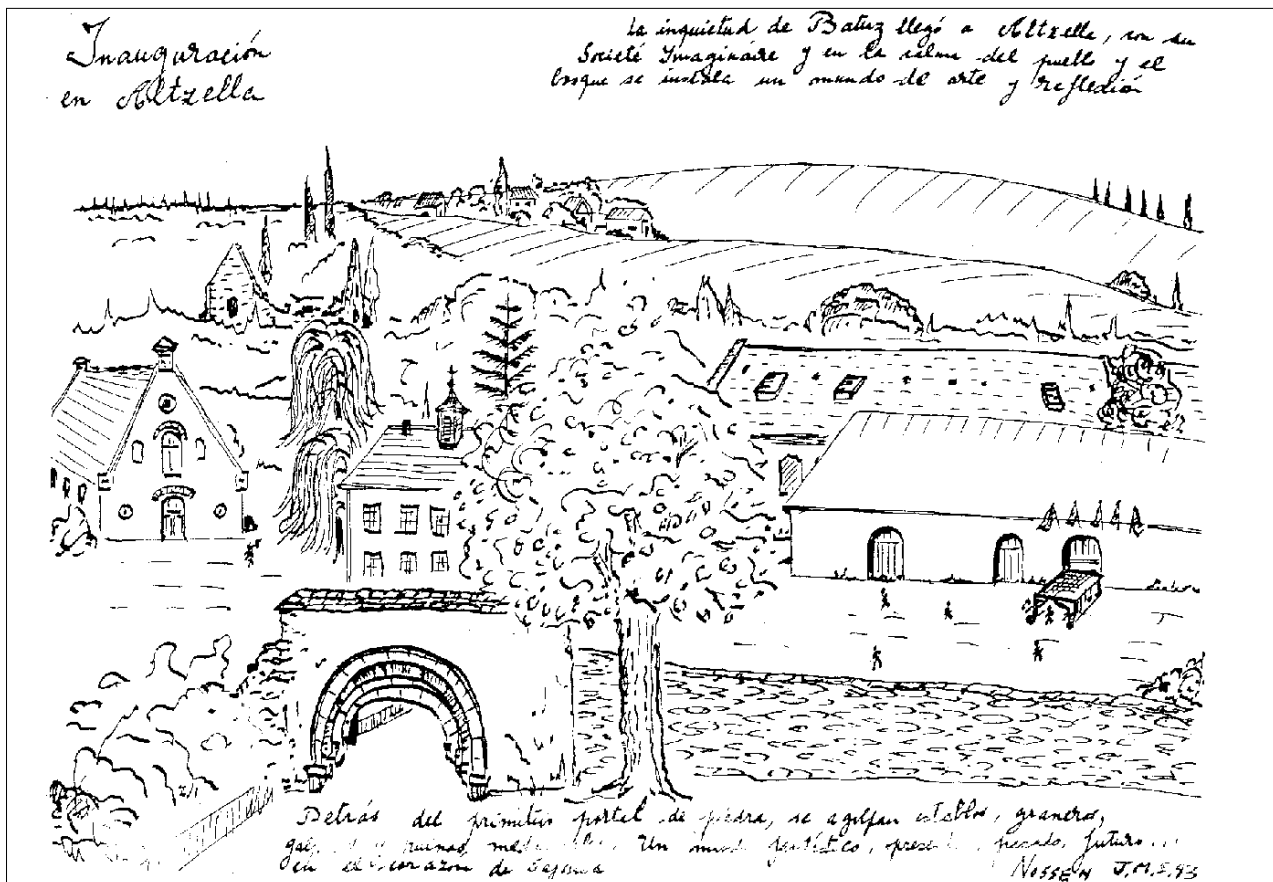 Inauguración
en Altzella
La inquietud de Batuz llegó a Altzella, con su
Societé Imagináire y en la calma del pueblo y el
bosque se instala un mundo de arte y refledión
Detrás del primitivo portal de piedra, se agolpan establos, graneros,
y ruinas Un fantástico, pasado, futuro...
en el corazon de Sajonia
NOSSEN J.M.S.93